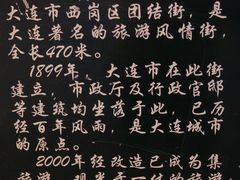 大连市西岗区团结街，是
大连著名的旅游风情街，
全长470米。
1899年，大连市在此街
建立，市政厅及行政官邸
等建筑均坐落于此，已历
经百年风雨，是大连城市
的原点。
2000年经改造已成为集